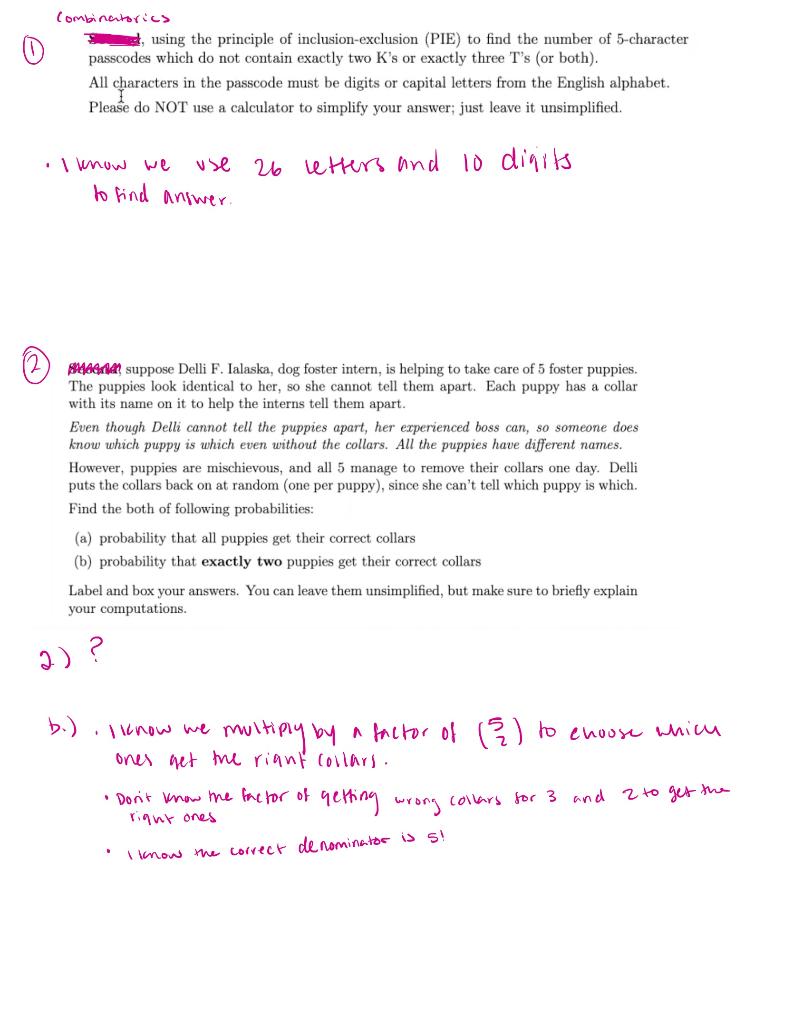 Combinatorics
①
, using the principle of inclusion-exclusion (PIE) to find the number of 5-character
passcodes which do not contain exactly two K's or exactly three T's (or both).
All characters in the passcode must be digits or capital letters from the English alphabet.
Please do NOT use a calculator to simplify your answer; just leave it unsimplified.
• I know we use 26 letters and 10 digits
to find answer.
②
suppose Delli F. Ialaska, dog foster intern, is helping to take care of 5 foster puppies.
The puppies look identical to her, so she cannot tell them apart. Each puppy has a collar
with its name on it to help the interns tell them apart.
Even though Delli cannot tell the puppies apart, her experienced boss can, so someone does
know which puppy is which even without the collars. All the puppies have different names.
However, puppies are mischievous, and all 5 manage to remove their collars one day. Delli
puts the collars back on at random (one per puppy), since she can't tell which puppy is which.
Find the both of following probabilities:
(a) probability that all puppies get their correct collars
(b) probability that exactly two puppies get their correct collars
Label and box your answers. You can leave them unsimplified, but make sure to briefly explain
your computations.
2) ?
b.) • I know we multiply by a factor of (5 2) to choose which
ones get the right collars.
• Don't know the factor of getting wrong collars for 3 and 2 to get the
right ones
• I know the correct denominator is 5!